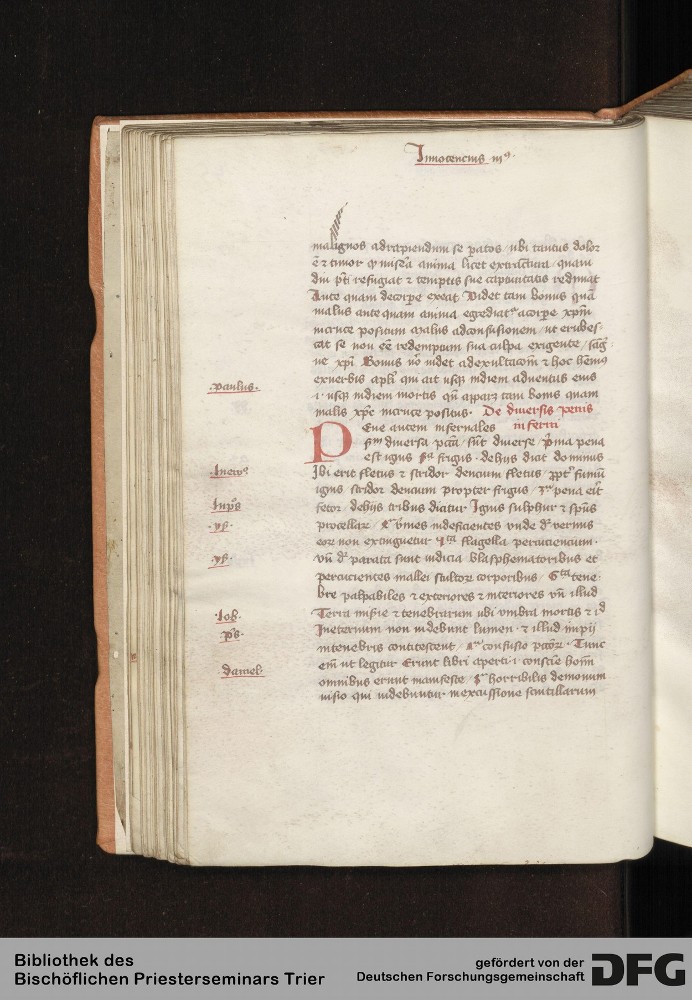 Innocencius iijꝰ
malignos ad rapiendum se paratos / ubi tantus dolor
ē ⁊ timor qd̛ misera anima licet extractura / quam
diu pt̄ refugiat ⁊ temptus sue captiuitatis redimat
Ante quam de corpe exeat Videt tam bonus quā
malus ante quam anima egrediat᷑ a corpe xpm̄
in cruce positum malus ad confusionem / ut erubes-
cat se non eē redemptum sua culpa exigente / sāg
ne xpi Bonus v̊o uidet ad exultacom̄ ⁊ hoc hēmꝰ
.paulus.
ex uerbis apl̄i qui ait usqꝫ in diem aduentus eius
.i. usqꝫ in diem mortis qn̄ apparꝫ tam bonis quam
malis xpc̄ in cruce positus. De diuersis penis
inferni
Pene autem infernales
scdm diuersa pctā / sūt diuerse p̄ma pena
est ignis sa frigus. de hijs dicit dominus
Ibi erit fletus ⁊ stridor dencium fletus / ppt᷑ fumū
ignis stridor dencium propter frigus / pena erit
fetor de hijs tribus dicitur Ignis sulphur ⁊ sp̄us
.ys.
procellarꝫ / v̄mes indeficientes unde dr̄ vermis
eorꝫ non extinguetur flagella percuciencium.
.ys.
vn̄ dr̄ parata sunt iudicia blasphematoribus et
percucientes mallei stultorꝫ corporibus / tene-
bre palpabiles ⁊ exteriores ⁊ interiores vn̄ illud
.Iob.
Terra mis̄ie ⁊ tenebrarum ubi vmbra mortis ⁊ id
.ps̄.
In eternum non uidebunt lumen. ⁊ illud impij
in tenebris conticescent / confusio pctōrꝫ. Tunc
em̄ ut legitur Erunt libri aperti .i. consciē hoīm
daniel
omnibus erunt manifeste / horribilis demonum
uisio qui uidebuntur in excussione scintillarum
Bibliothek des
Bischöflichen Priesterseminars Trier
gefördert von der
Deutschen Forschungsgemeinschaft
DFG